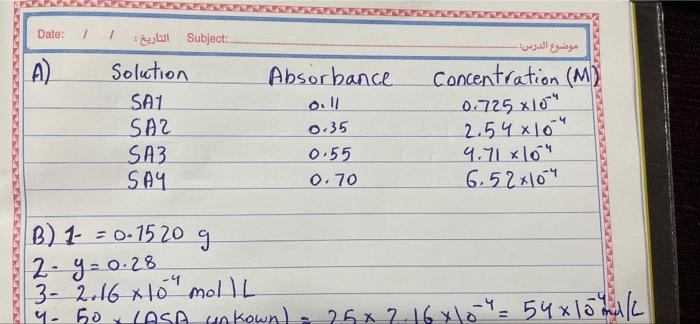 Date: / / التاريخ: Subject: موضوع الدرس:
A) Solution Absorbance Concentration (M)
SA1 0.11 0.725 x10⁻⁴
SA2 0.35 2.54 x10⁻⁴
SA3 0.55 4.71 x10⁻⁴
SA4 0.70 6.52x10⁻⁴
B) 1- = 0.1520 g
2- y= 0.28
3- 2.16 x10⁻⁴ mol)L
4- 50 x (ASA unkown) = 25x 2.16 x10⁻⁴ = 54 x10⁻⁴ mol/L